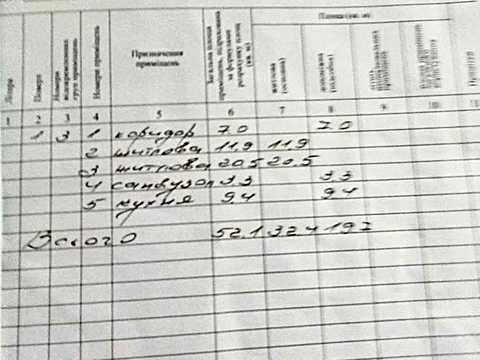 Площа (кв. м)
Літера
Поверх
Номери відокремлених груп приміщень
Номери приміщень
Призначення приміщень
Загальна площа приміщень, підрахована за формулами розрахунку площ (кв. м)
житлова (основна)
допоміжна (підсобна)
1 2 3 4 5 6 7 8 9 10
1 3 1 коридор 7.0 7.0
2 житлова 11,9 11,9
3 житлова 20,5 20,5
4 санвузол 3.3 3.3
5 кухня 9.4 9.4
Всього 52.1 32.4 19.7